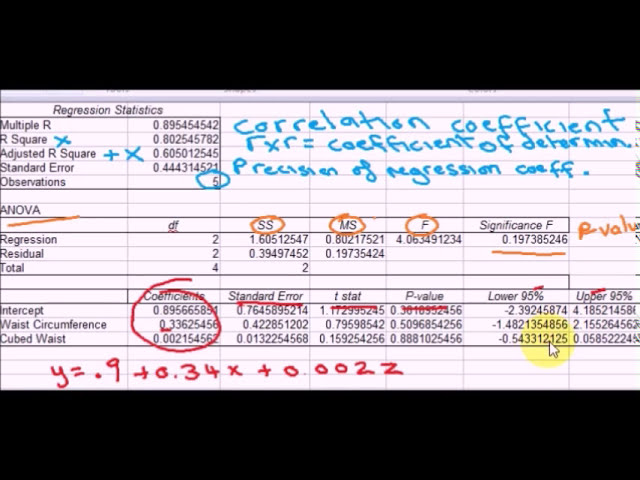 Regression Statistics
Multiple R 0.895454542 correlation coefficient
R Square x 0.802545782 rxr = coefficient of determin.
Adjusted R Square + x 0.605012545
Standard Error 0.444314521 Precision of regression coeff.
Observations 5
ANOVA
df SS MS F Significance F P-valu
Regression 2 1.60512547 0.80217521 4.063491234 0.197385246
Residual 2 0.39497452 0.19735424
Total 4 2
Coefficients Standard Error t stat P-value Lower 95% Upper 95%
Intercept 0.895665851 0.7645895214 1.172995245 0.3618952456 -2.39245874 4.18521458
Waist Circumference 0.33625456 0.422851202 0.79598542 0.5096854256 -1.4821354856 2.155264562
Cubed Waist 0.002154562 0.0132254568 0.159254256 0.8881025456 -0.543312125 0.058522245
y = .9 + 0.34x + 0.002z